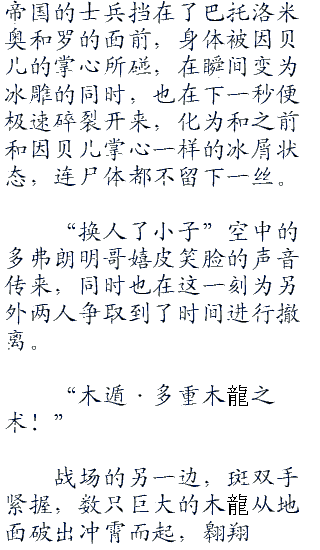 帝国的士兵挡在了巴托洛米
奥和罗的面前，身体被因贝
儿的掌心所碰，在瞬间变为
冰雕的同时，也在下一秒便
极速碎裂开来，化为和之前
和因贝儿掌心一样的冰屑状
态，连尸体都不留下一丝。
“换人了小子”空中的
多弗朗明哥嬉皮笑脸的声音
传来，同时也在这一刻为另
外两人争取到了时间进行撤
离。
“木遁·多重木龍之
术！”
战场的另一边，斑双手
紧握，数只巨大的木龍从地
面破出冲霄而起，翱翔